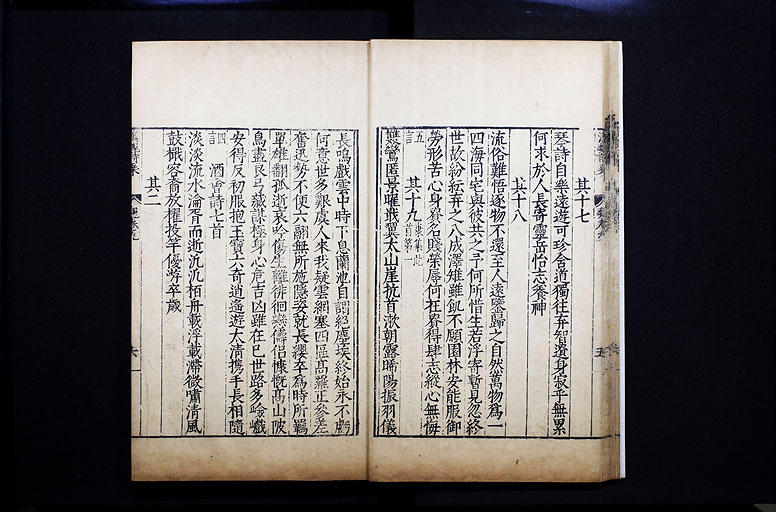 其十七
琴詩自樂遠遊可珍含道獨往弃智遺身寂乎無累
何求於人長寄靈岳怡志養神
其十八
流俗難悟逐物不還至人遠鑒歸之自然萬物爲一
四海同宅與彼共之予何所惜生若浮寄暫見忽終
世故紛紜弃之八成澤雉雖飢不願園林安能服御
勞形苦心身貴名賤榮辱何在貴得肆志縱心無悔
五言
其十九
首第一
雙鸞匿景曜戢翼太山崖抗首漱朝露晞陽振羽儀
長鳴戲雲中時下息蘭池自謂絕塵埃終始永不虧
何意世多艱虞人來我疑雲網塞四區高羅正參差
奮迅勢不便六翮無所施隱姿就長纓卒爲時所羈
單雄翩孤逝哀吟傷生離徘徊戀儔侣慷慨高山陂
鳥盡良弓藏謀極身心危吉凶雖在己世路多嶮巇
安得反初服抱玉寶六奇逍遙遊太清攜手長相隨
四言
酒會詩七首
淡淡流水淪胥而逝汎汎栢舟載浮載滯微嘯清風
鼓檝容裔放櫂投竿優游卒歲
其二